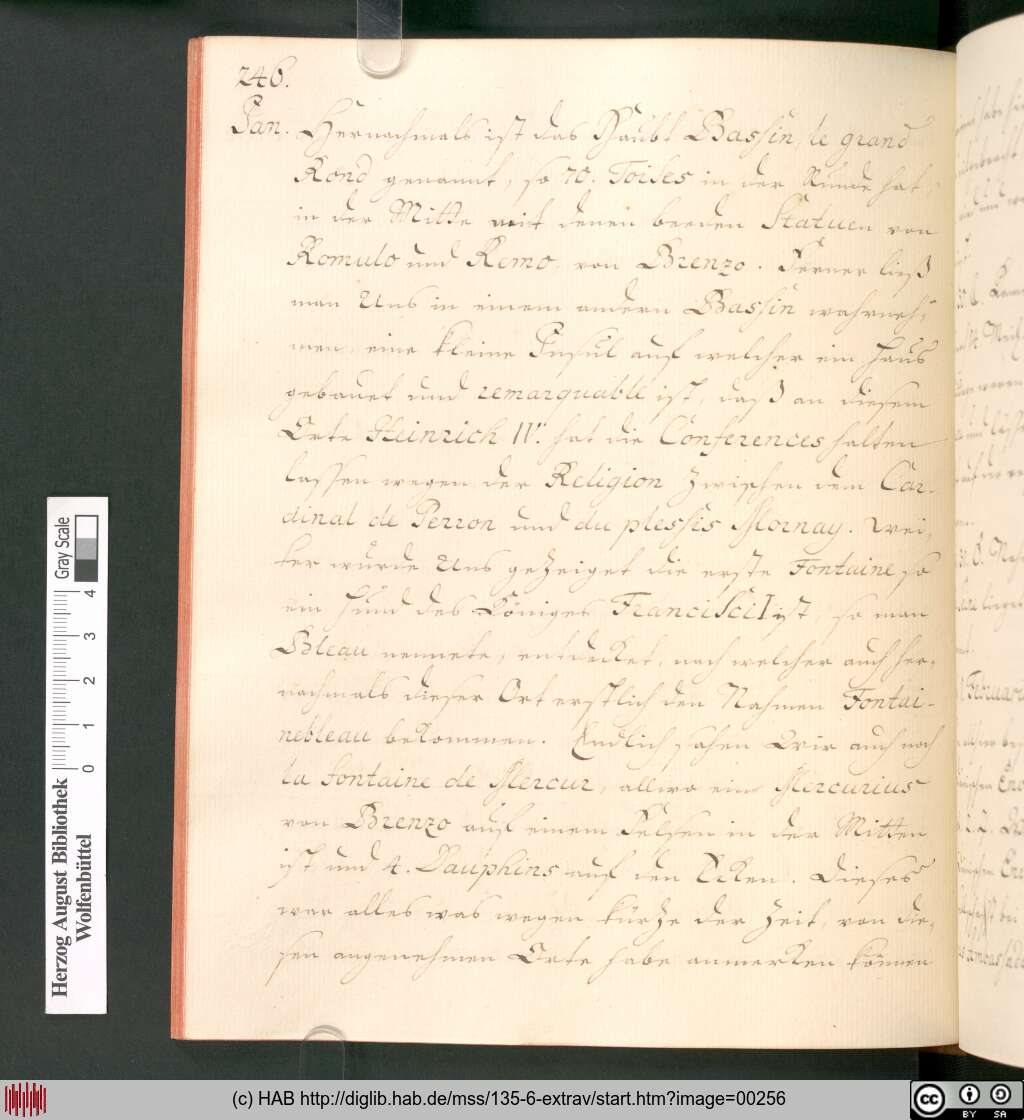 246.
Jan. Hernachmals ist das Haubt Bassin, le grand
Rond genannt, so 70. Toises in der Runde hat,
in der Mitte mit denen beeden Statuen von
Romulo und Remo, von Brenzo. Ferner ließ
man Uns in einem andern Bassin wahrneh-
men, eine kleine Insul auf welcher ein Haus
gebauet und remarquable ist, daß an diesem
Orte Heinrich IV. hat die Conferences halten
lassen wegen der Religion zwischen dem Car-
dinal de Perron und du plessis Mornay. Wei-
ter wurde Uns gezeiget die erste Fontaine so
ein Hund des Königes Francisci I ist, so man
Bleau nennete, entdecket, nach welcher auch her-
nachmals dieser Ort erstlich den Nahmen Fontai-
nebleau bekommen. Endlich sahen Wir auch noch
la fontaine de Mercur, allwo ein Mercurius
von Brenzo auf einem Felsen in der Mitten
ist und 4. Dauphins auf den Ecken. Dieses
war alles was wegen kürtze der Zeit, von die-
sen angenehmen Orte habe anmerken können
Herzog August Bibliothek
Wolfenbüttel
Gray Scale
0 1 2 3 4
(c) HAB http://diglib.hab.de/mss/135-6-extrav/start.htm?image=00256
cc BY SA